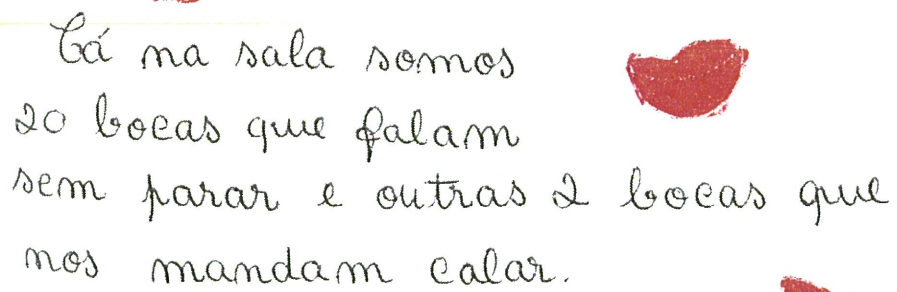 Cá na sala somos
20 bocas que falam
sem parar e outras 2 bocas que
nos mandam calar.